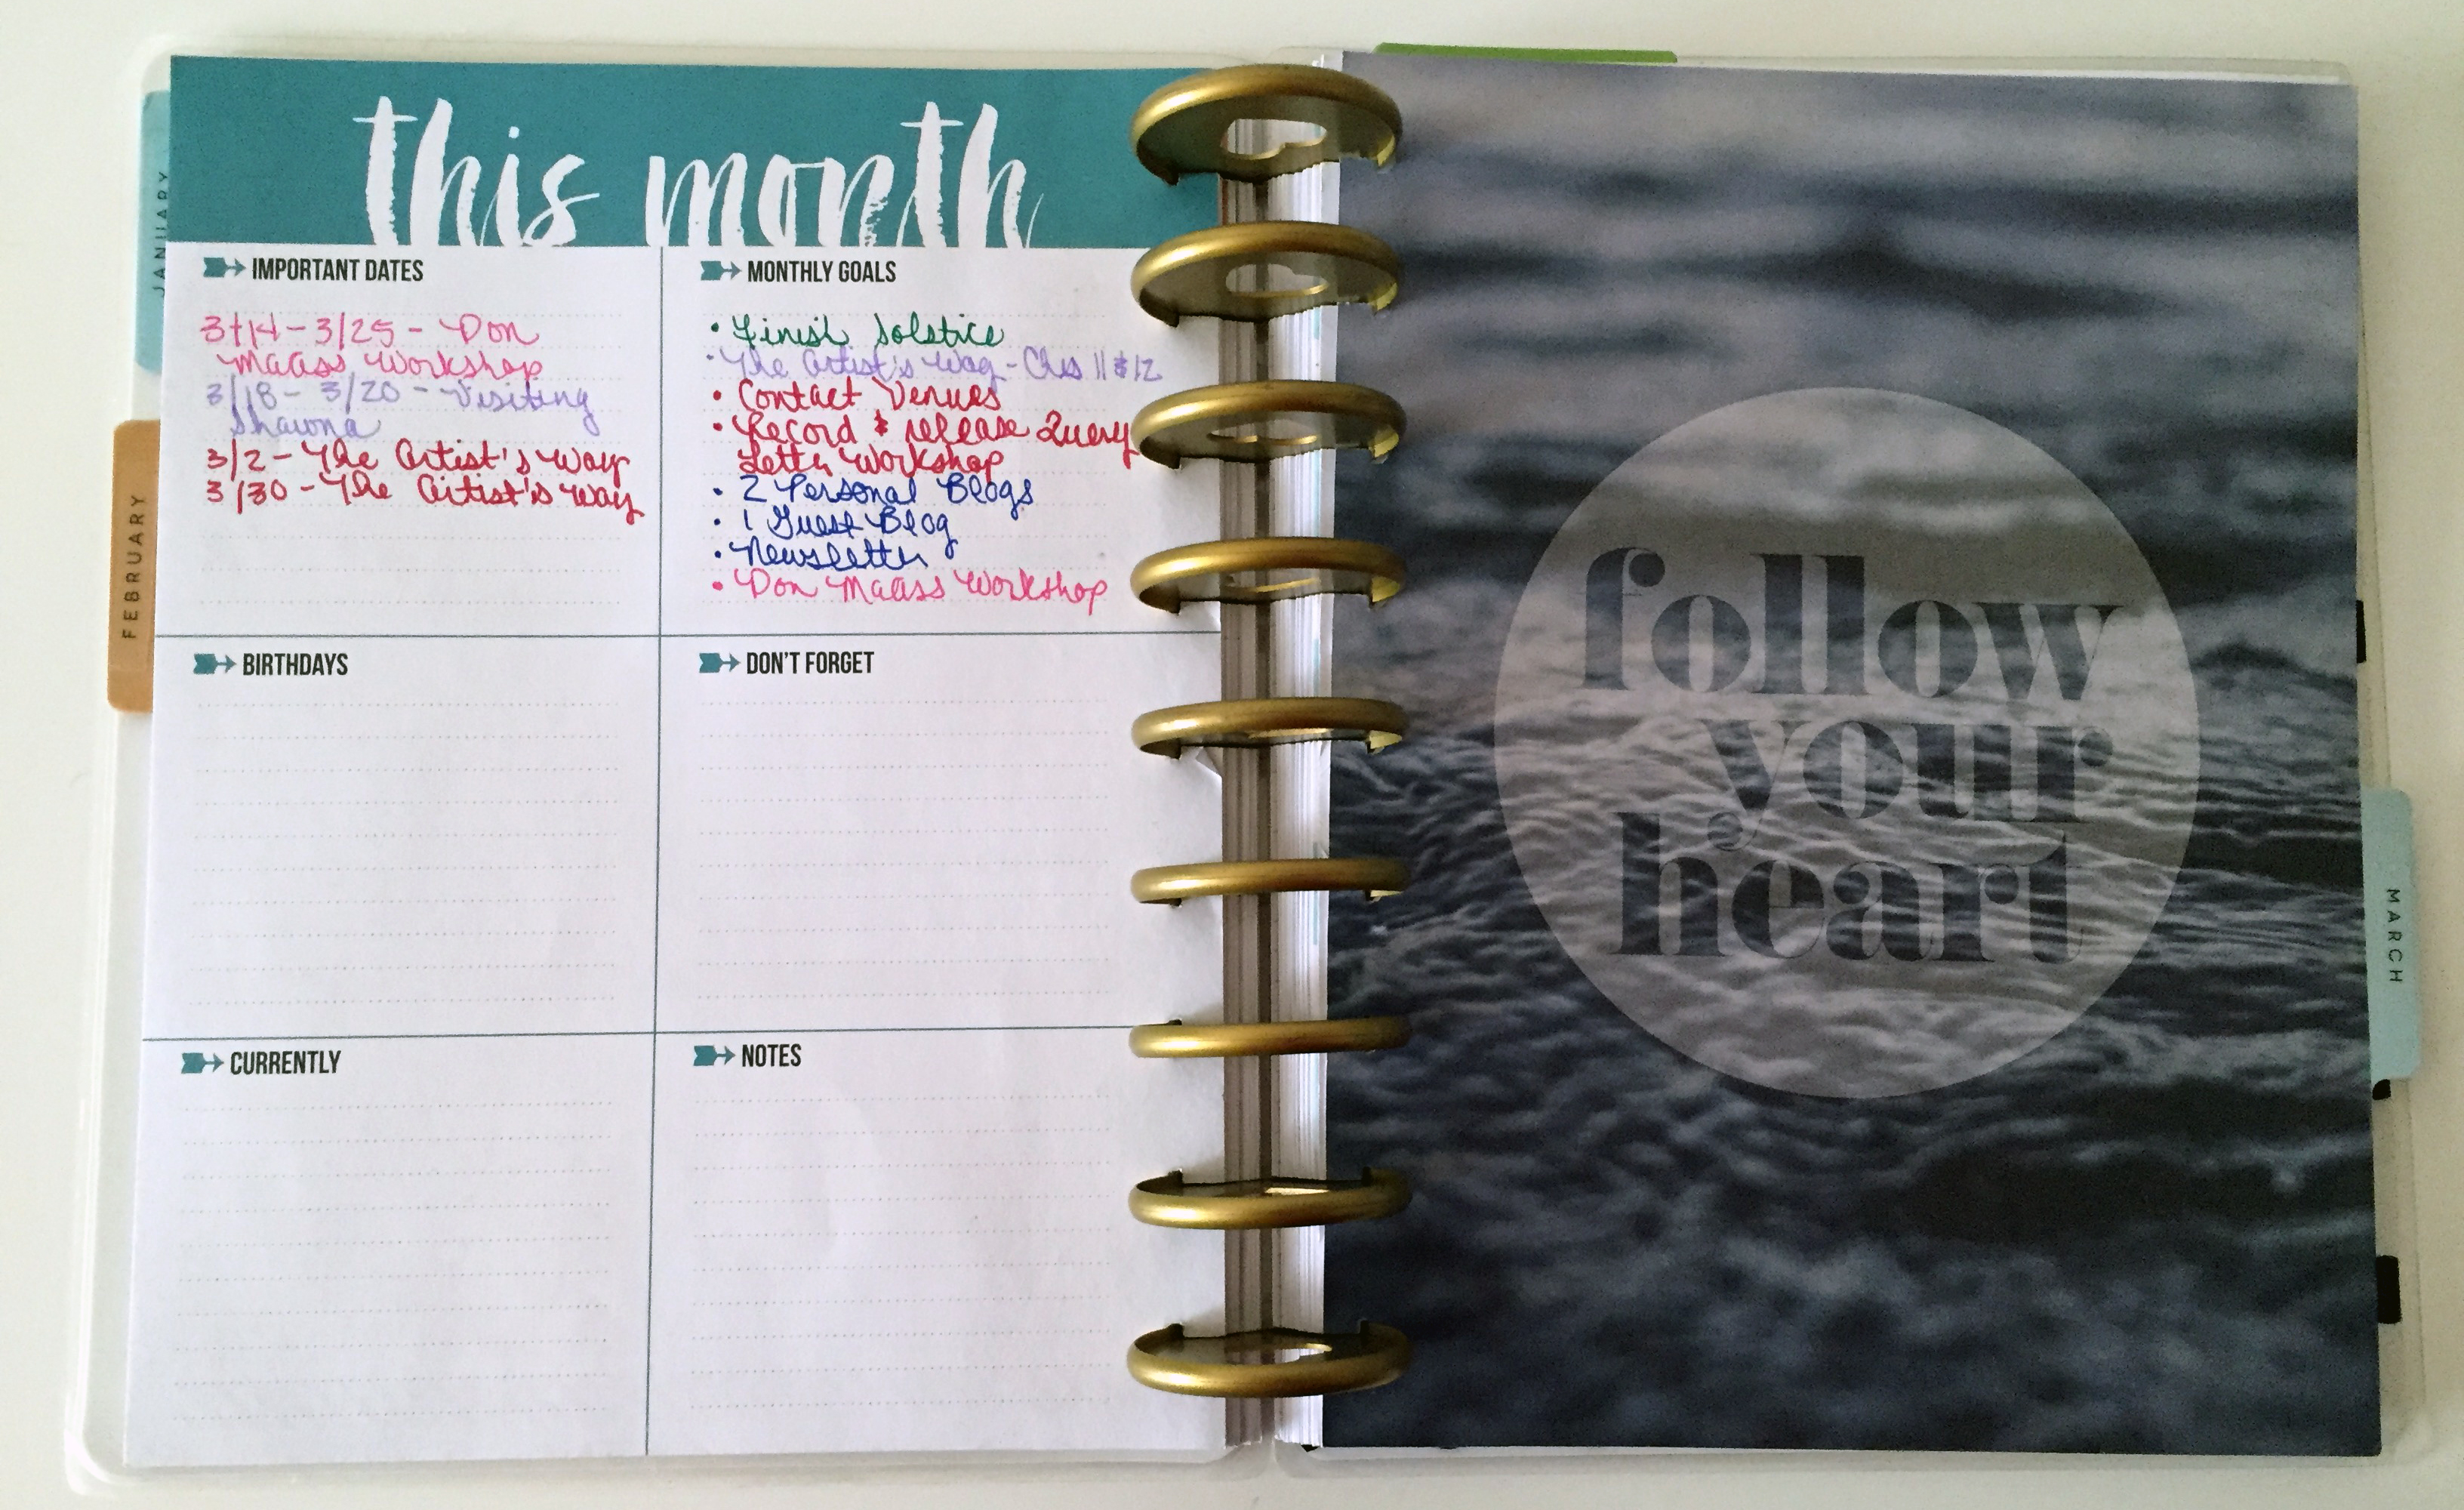 this month
JANUARY
FEBRUARY
IMPORTANT DATES
3/14 - 3/25 - Don
Maass Workshop
3/18 - 3/20 - Visiting
Shawna
3/2 - The Artist's Way
3/30 - The Artist's Way
MONTHLY GOALS
• Finish Solstice
• The Artist's Way - Chs 11 & 12
• Contact Venues
• Record & release Query
Letter Workshop
• 2 Personal Blogs
• 1 Guest Blog
• Newsletter
• Don Maass Workshop
BIRTHDAYS
DON'T FORGET
CURRENTLY
NOTES
follow
your
heart
MARCH